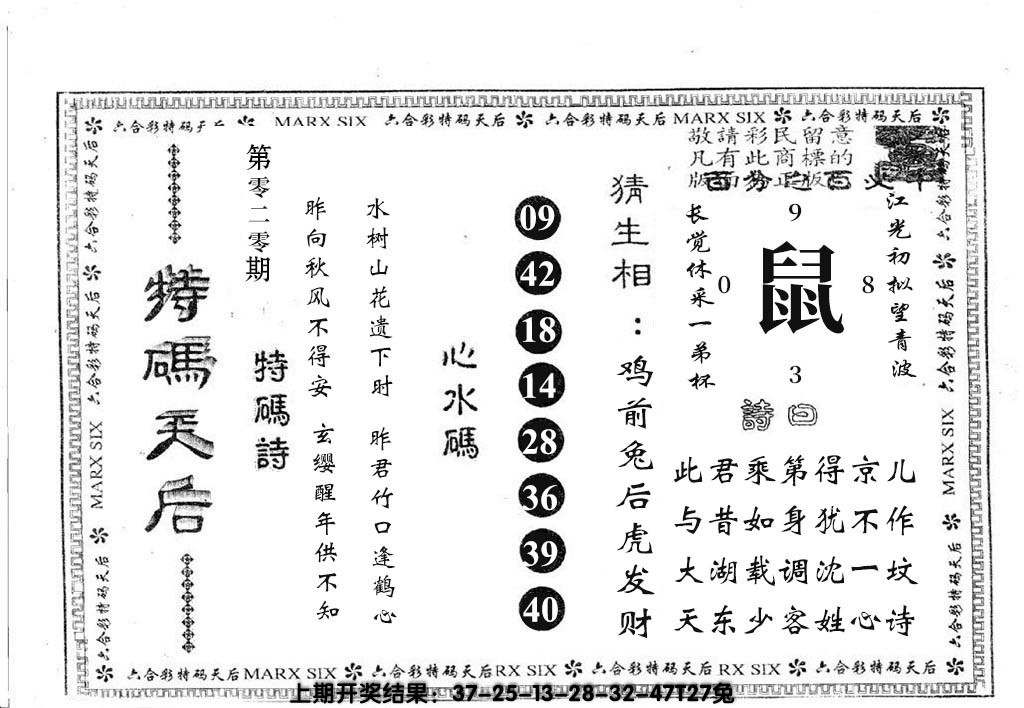 六合彩特码天后 MARX SIX 六合彩特码天后 六合彩特码天后 MARX SIX 六合彩特码天后
敬請彩民留意
凡有此商標的
江光初拟望青波
长觉休采一弟杯
9
0 鼠 8
3
詩曰
此君乘第得京儿
与昔如身犹不作
大湖载调沈一坟
天东少客姓心诗
猜生相：鸡前兔后虎发财
09
42
18
14
28
36
39
40
心水碼
水树山花遗下时 昨君竹口逢鹤心
昨向秋风不得安 玄缨醒年供不知
特碼詩
第零二零期
特碼天后
六合彩特码天后 六合彩特码天后 MARX SIX 六合彩特码天后
六合彩特码天后 六合彩特码天后 MARX SIX 六合彩特码天后
六合彩特码天后MARX SIX 六合彩特码天后RX SIX 六合彩特码天后RX SIX 六合彩特码天后
上期开奖结果：37-25-13-28-32-47T27兔